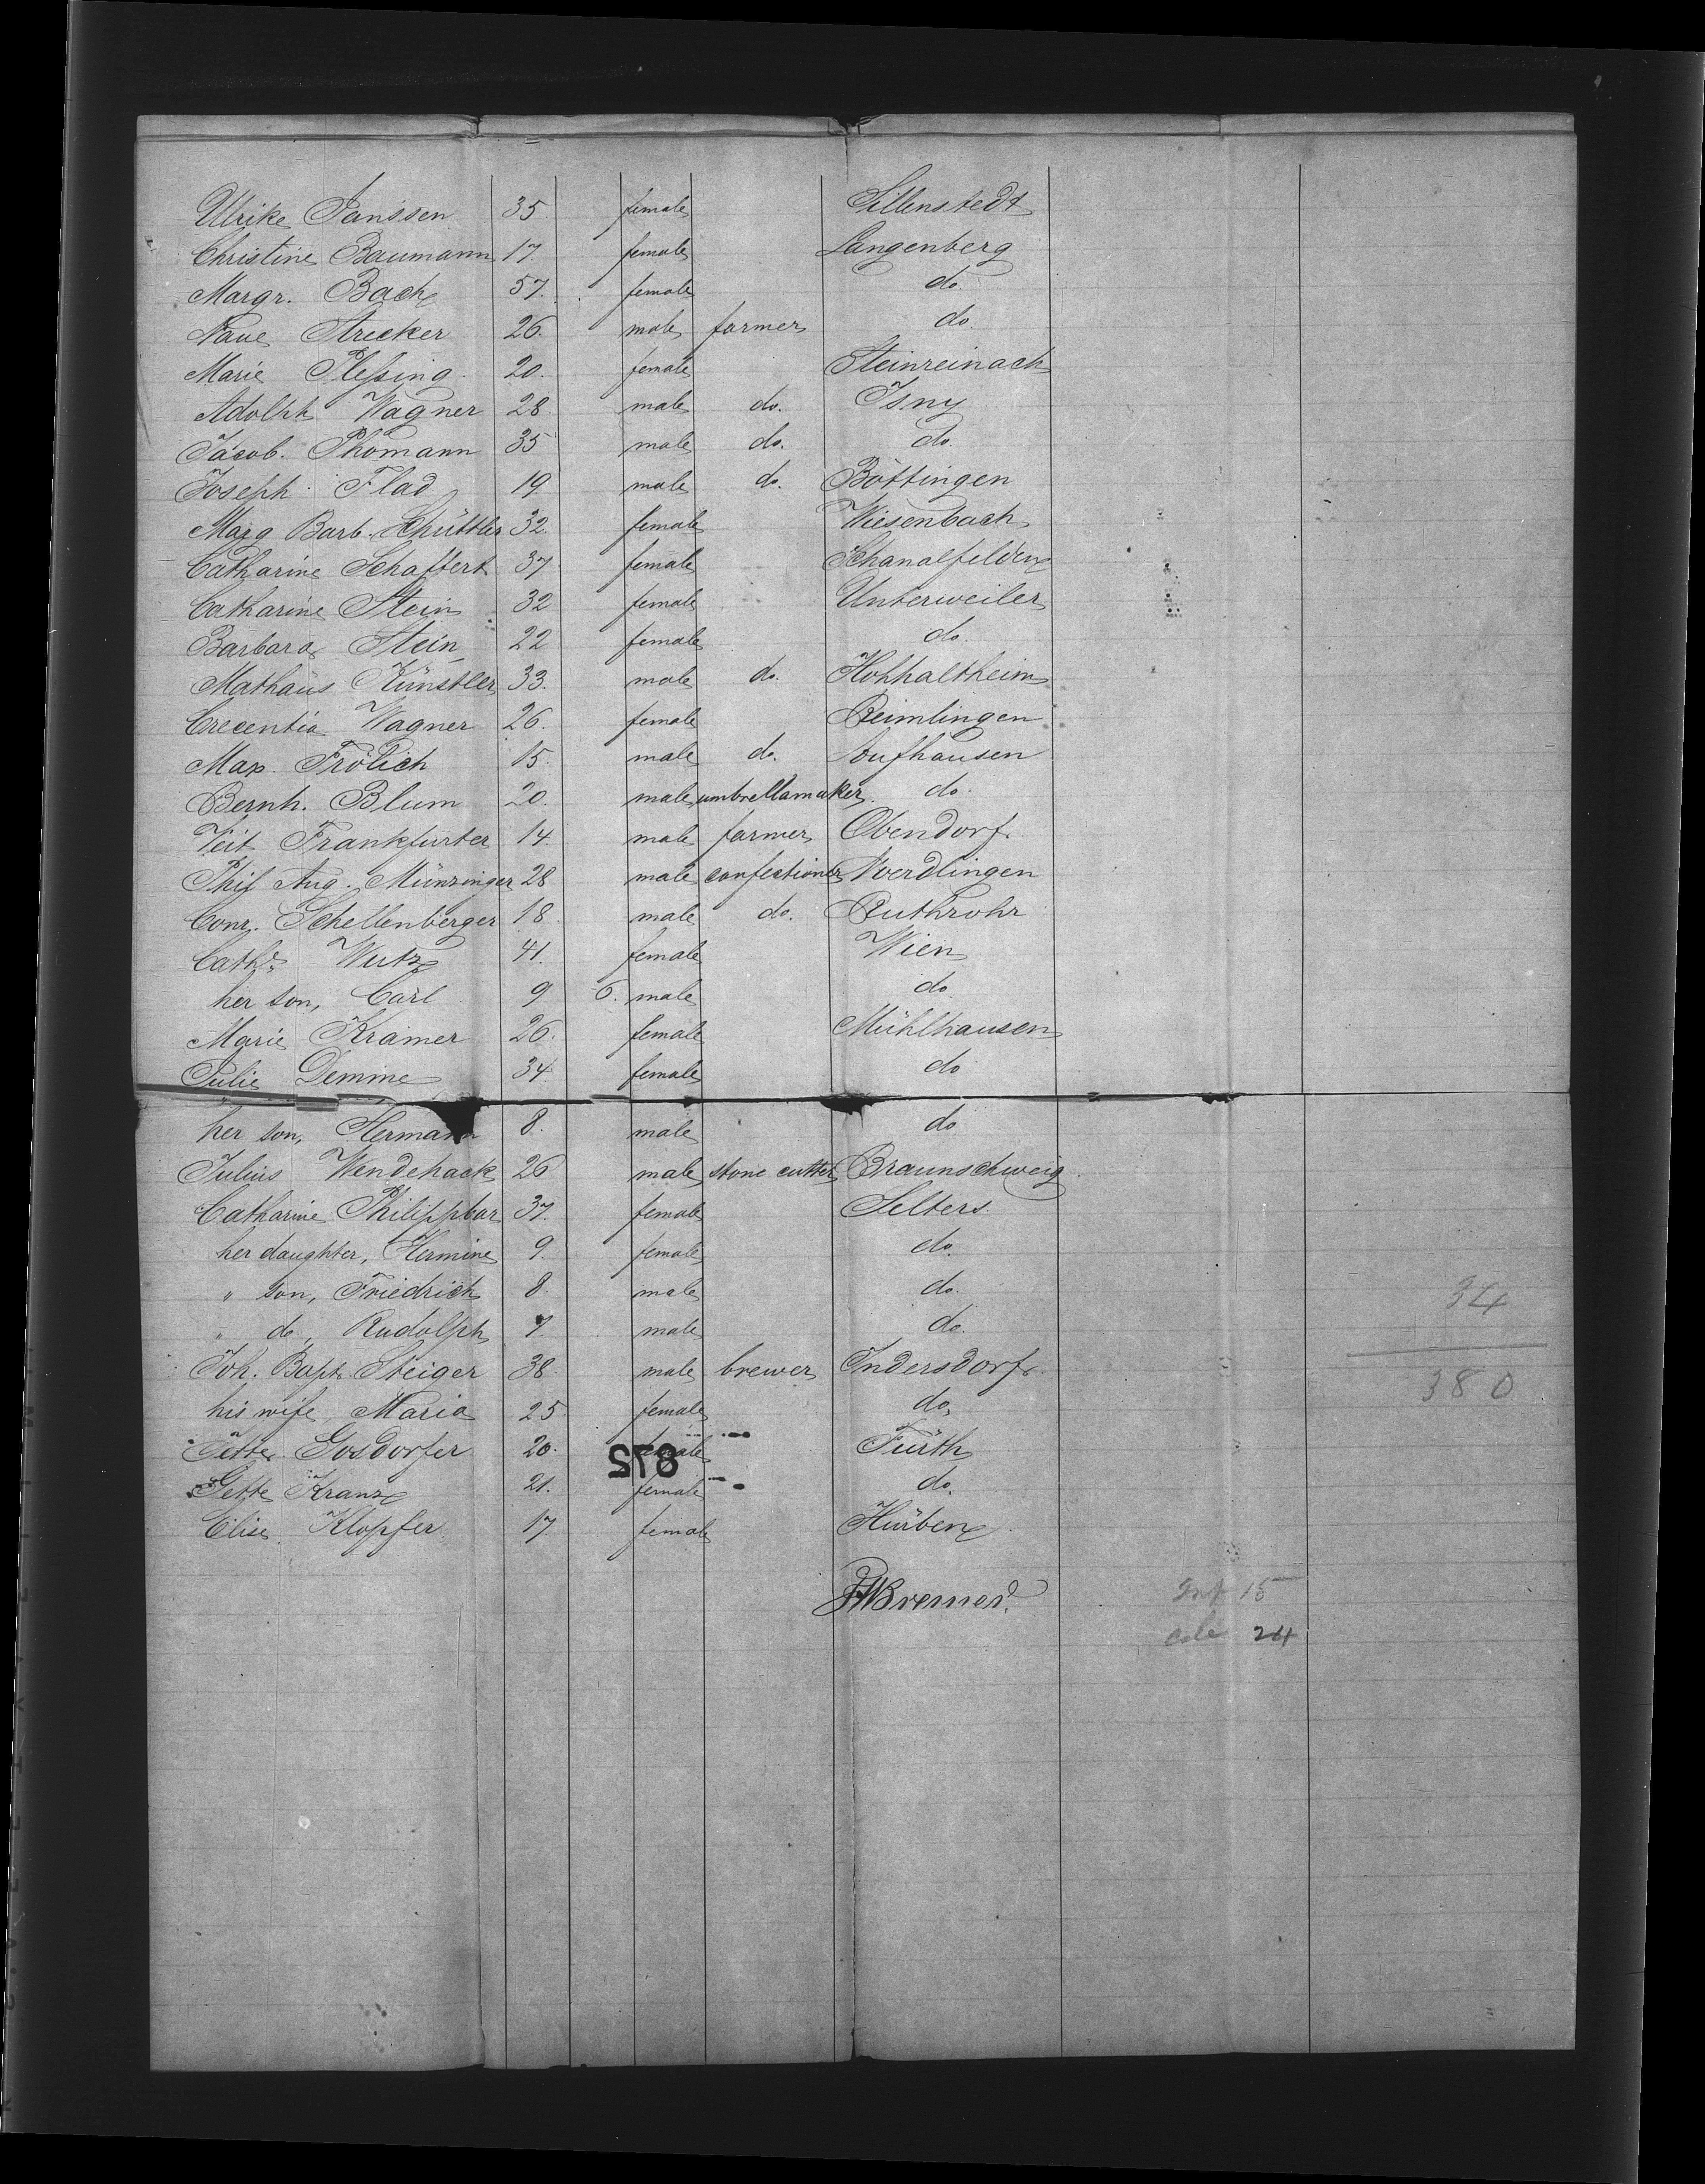 Ulrike Janssen 35 female Sillenstedt
Christine Baumann 17. female Langenberg
Margr. Bach 57. female do.
Strecker 26. male farmer do.
Marie Pleßing 20. female Steinreinach
Adolph Wagner 28 male do. Isny
Jacob. Thomann 35 male do. do.
Joseph Flad 19 male do. Böttingen
Marg Barb. Schüttler 32 female Wiesenbach
Catharine Schaffert 37 female
Catharine Stein 32 female Unterweiler
Barbara Stein 22 female do.
Mathäus Künstler 33. male do. Hohhaltheim
Crecentia Wagner 26. female Reimlingen
Max. Frölich 15. male do. Aufhausen
Bernh. Blum 20. male umbrellamaker do.
Veit Frankfurter 14. male farmer Obendorf.
Aug. Münzinger 28 male confectioner Noerdlingen
Conr. Schellenberger 18 male do. Ruthrohr
Cath. Wutz 41. female Wien
her son, Carl 9 6. male do
Marie Kramer 26. female Mühlhausen
Julie Demine 34 female do
her son, Hermann 8. male do
Julius Wendehack 26 male stone cutter Braunschweig
Catharine Philippbar 37. female Selters
her daughter, Hermine 9. female do.
" son, Friedrich 8. male do.
" do, Rudolph 7 male do.
Joh. Bapt. Steiger 38. male brewer Indersdorf.
his wife, Maria 25 female do,
Jette. Gosdorfer 20. female Fürth
Jette Kranz 21. female do.
Elise. Klopfer 17. female Hürben
Bremer.
34
380
Inf 15
24
872